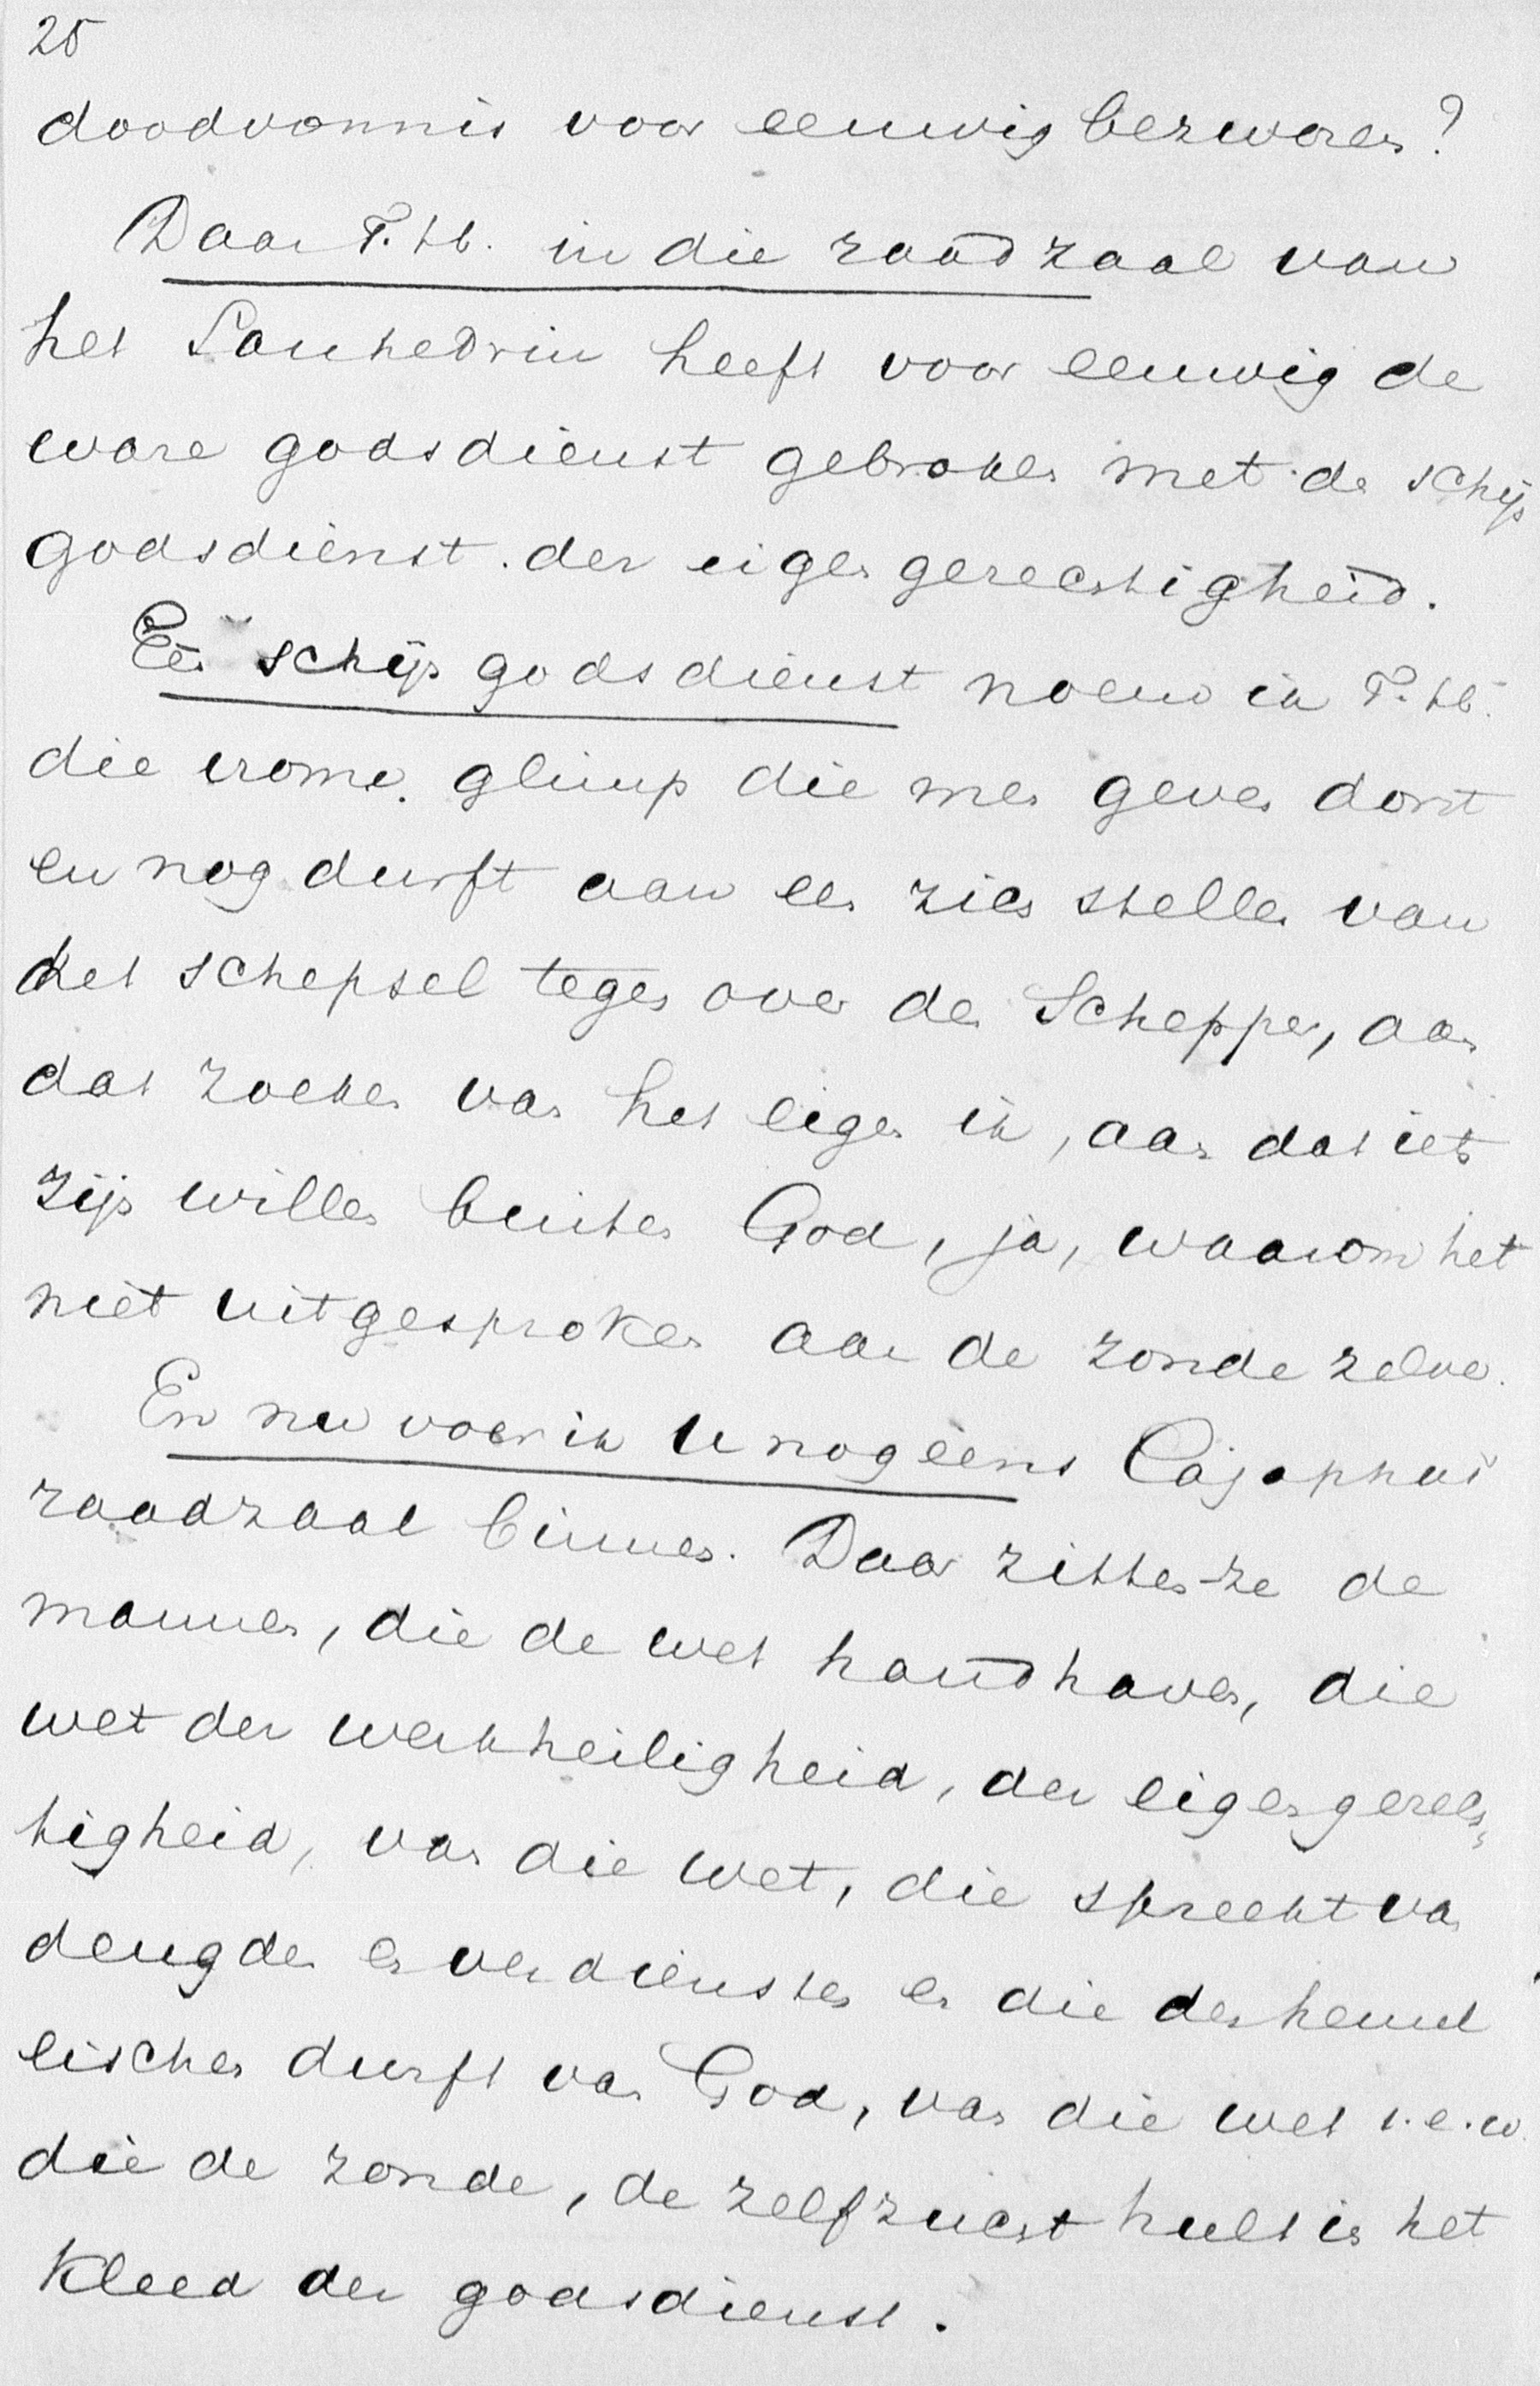 25
doodvonnis voor eeuwig bezworen?
Daar T. H. in die raadzaal van
het Sanhedrin heeft voor eeuwig de
ware godsdienst gebroken met de schijn
godsdienst der eigen gerechtigheid.
Een schijn godsdienst noem ik T. H.
die vrome glimp die men geven dorst
en nog durft aan een zich stellen van
het schepsel tegen over den Schepper, aan
dat zoeken van het eigen ik, aan dat iets
zijn willen buiten God, ja, waarom het
niet uitgesproken aan de zonde zelve.
En nu voer ik U nog eens Cajaphas
raadzaal binnen. Daar zitten ze de
mannen, die de wet handhaven, die
wet der werkheiligheid, der eigengerech„
tigheid, van die wet, die spreekt van
deugden en verdiensten en die den hemel
eischen durft van God, van die wet t.e.w.
die de zonde, de zelfzucht hult in het
kleed der godsdienst.